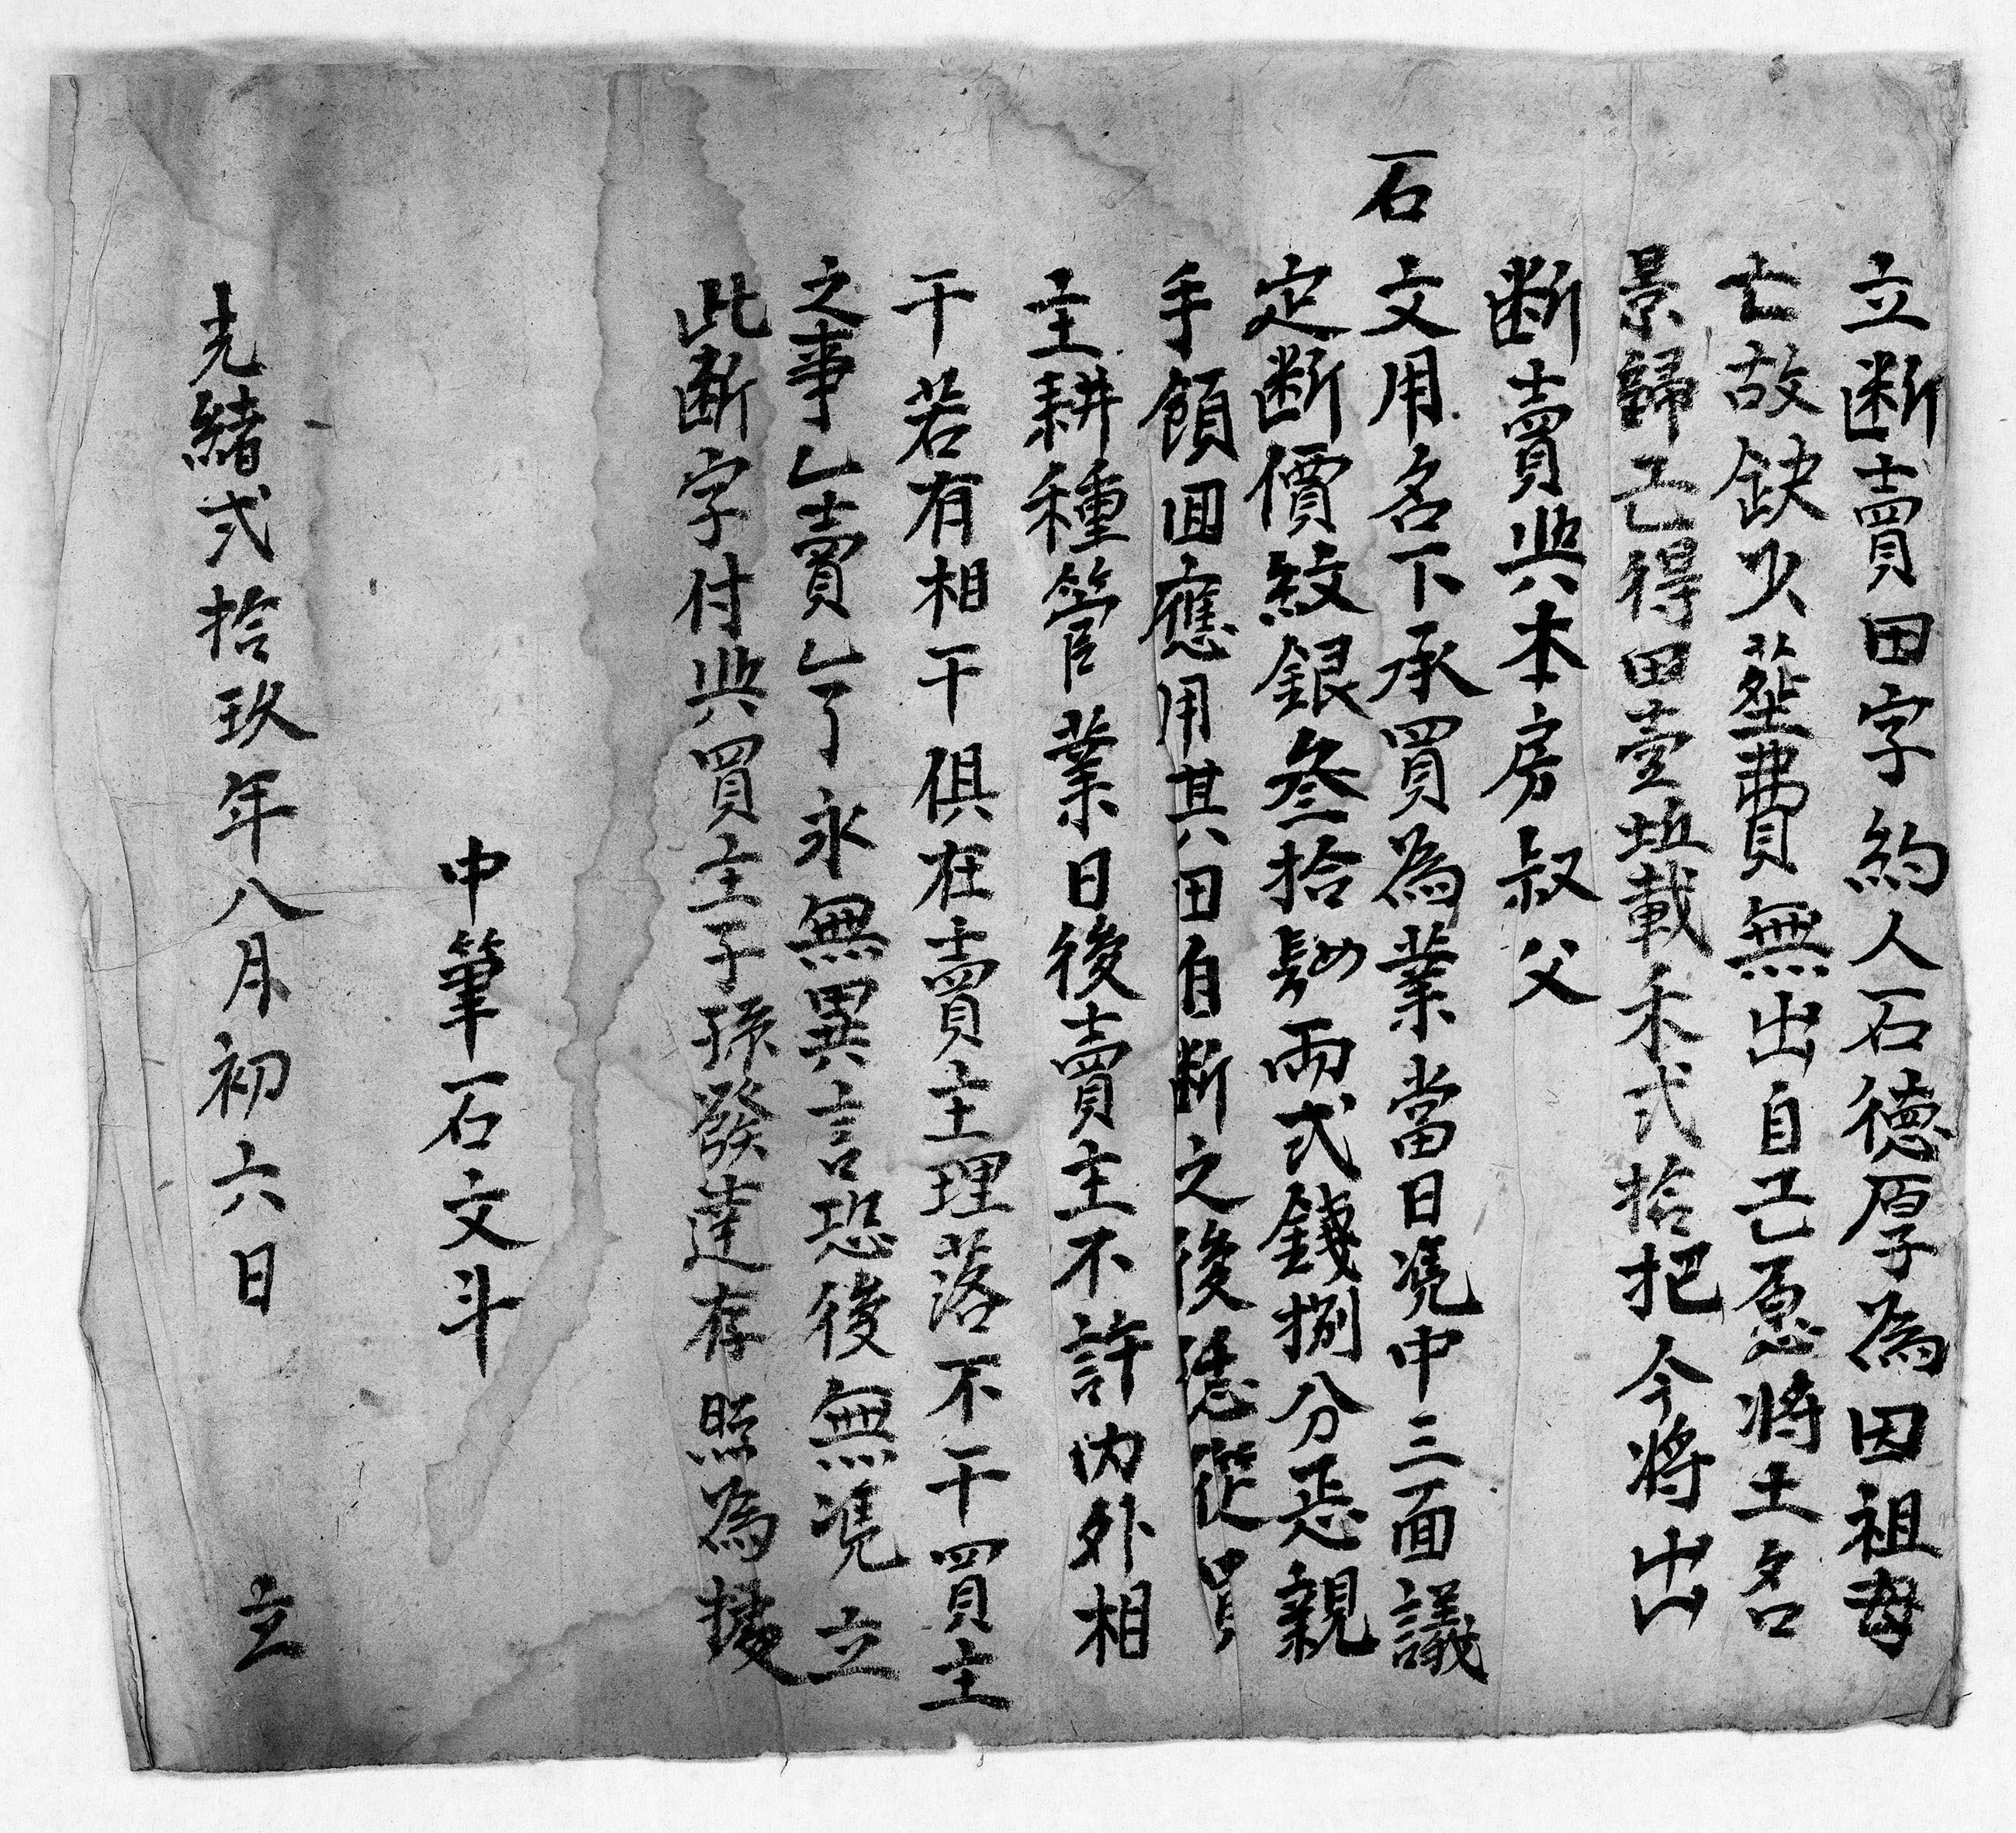 立断賣田字約人石德厚為因祖母
亡故缺少塟費無出自己愿将土名
景歸己得田壹坵載禾弍拾把今将出
断賣與本房叔父
石文用名下承買為業當日凴中三面議
定断價紋銀叁拾两弍錢捌分悉親
手領囬應用其田自断之後憑從買
主耕種管業日後賣主不許内外相
干若有相干俱在賣主理落不干買主
之事乚賣乚了永無異言恐後無凴立
此断字付與買主子孫發達存照為據
中筆石文斗
光緒弍拾玖年八月初六日立